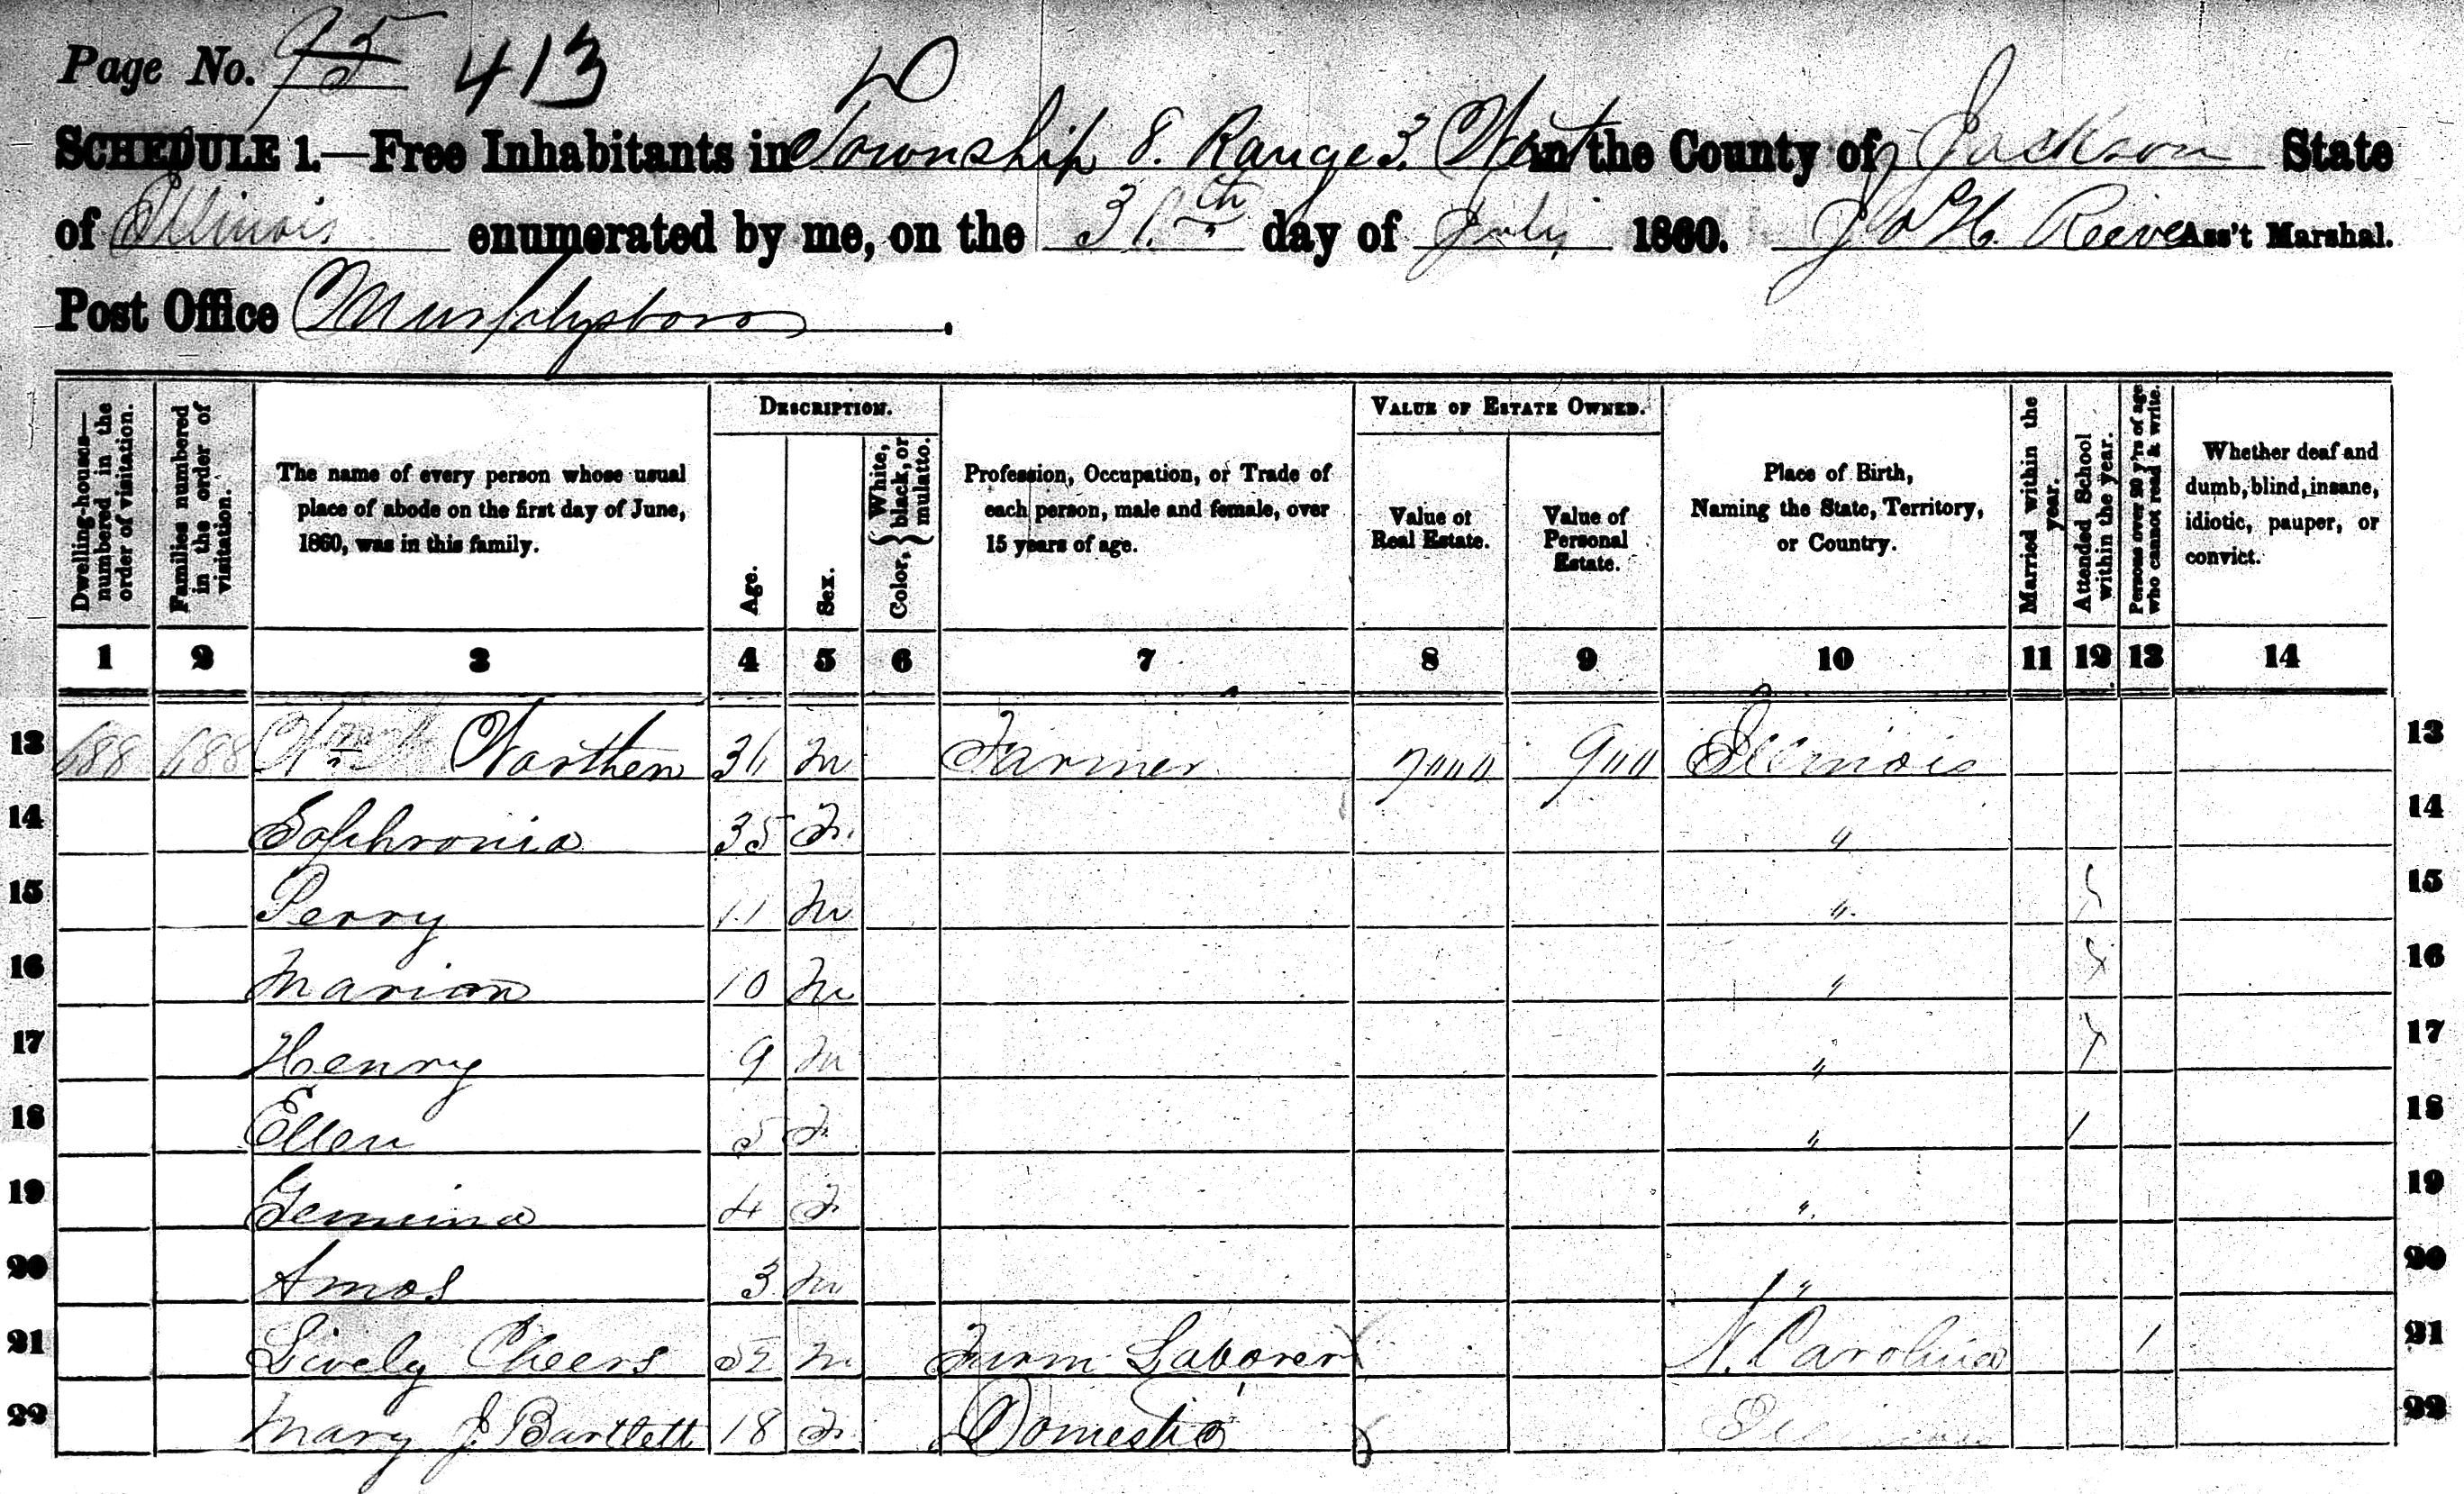 Page No. 95 413
SCHEDULE 1.—Free Inhabitants in Township 8. Range 3. West in the County of Jackson State
of Illinois enumerated by me, on the 31th day of July 1860. Reeve Ass't Marshal.
Post Office Murphysboro.
Dwelling-houses—numbered in the order of visitation.
Families numbered in the order of visitation.
The name of every person whose usual place of abode on the first day of June, 1860, was in this family.
DESCRIPTION.
Age.
Sex.
Color, } White, black, or mulatto.
Profession, Occupation, or Trade of each person, male and female, over 15 years of age.
VALUE OF ESTATE OWNED.
Value of Real Estate.
Value of Personal Estate.
Place of Birth, Naming the State, Territory, or Country.
Married within the year.
Attended School within the year.
Persons over 20 y'rs of age who cannot read & write.
Whether deaf and dumb, blind, insane, idiotic, pauper, or convict.
1 2 3 4 5 6 7 8 9 10 11 12 13 14
13 688 688 Wm Worthen 36 m Farmer 7000 900 Illinois 13
14 Sophronia 35 F. " 14
15 Perry 11 m " 15
16 Marion 10 m " 16
17 Henry 9 m " 17
18 Ellen 5 F. " / 18
19 Gemima 4 F " 19
20 Amos 3 m " 20
21 Lively Cheers 52 m Farm Laborer N. Carolina / 21
22 Mary J. Bartlett 18 F. Domestic Illinois 22